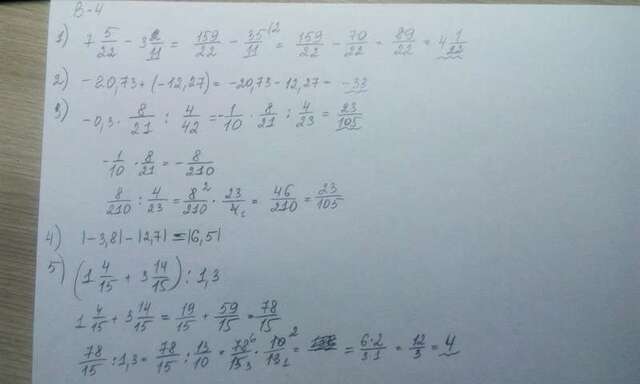 В-4
1) 7 5/22 - 3 2/11 = 159/22 - 35/11 ^(2 = 159/22 - 70/22 = 89/22 = 4 1/22
2) -20,73 + (-12,27) = -20,73 - 12,27 = -33
3) -0,3 · 8/21 : 4/42 = -1/10 · 8/21 : 4/23 = 23/105
-1/10 · 8/21 = -8/210
8/210 : 4/23 = 8 2/210 · 23/4 1 = 46/210 = 23/105
4) |-3,8| - |2,7| = |6,5|
5) (1 4/15 + 3 14/15) : 1,3
1 4/15 + 3 14/15 = 19/15 + 59/15 = 78/15
78/15 : 1,3 = 78/15 : 13/10 = 78 6/15 3 · 10 2/13 1 = = 6·2/3·1 = 12/3 = 4